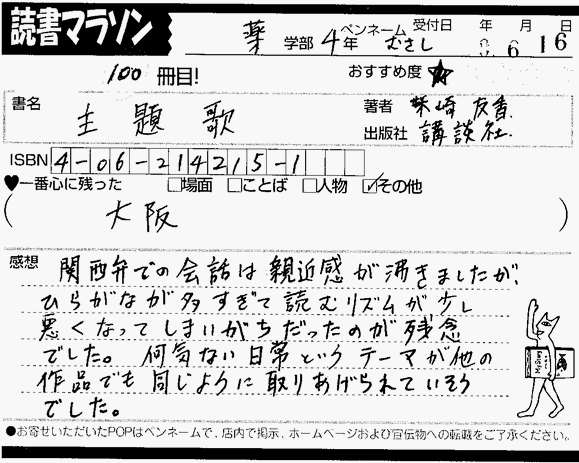 読書マラソン
薬 学部 4年 ペンネーム むさし 受付日 年 6月 16日
100 冊目! おすすめ度 ★
書名 主題歌
著者 柴崎 友香.
出版社 講談社.
ISBN 4-06-214215-1
♥一番心に残った □場面 □ことば □人物 ☑その他
( 大阪 )
感想 関西弁での会話は親近感が沸きましたが、
ひらがなが多すぎて読むリズムが少し
悪くなってしまいがちだったのが残念
でした。何気ない日常というテーマが他の
作品でも同じように取りあげられていそう
でした。
●お寄せいただいたPOPはペンネームで、店内で掲示、ホームページおよび宣伝物への転載をご了承ください。